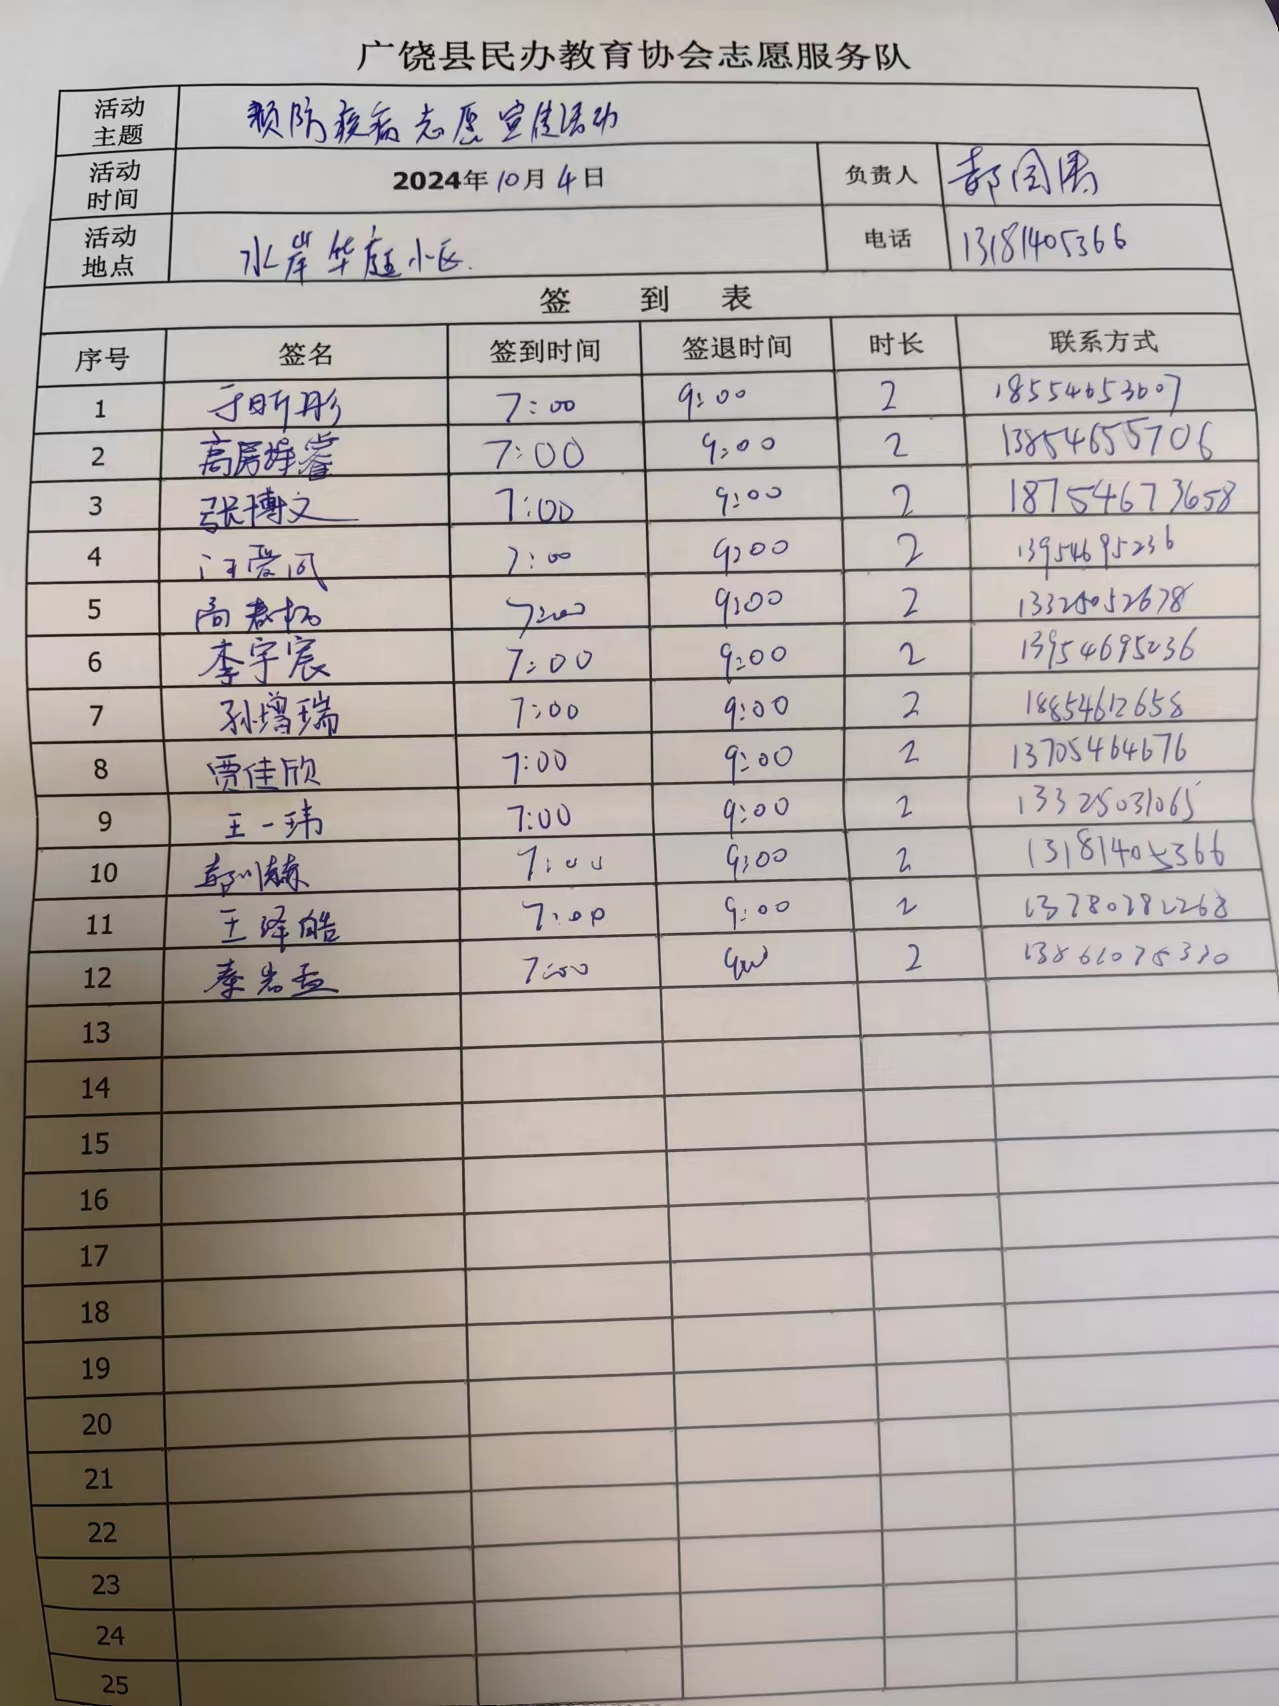 广饶县民办教育协会志愿服务队
活动主题 预防疾病志愿宣传活动
活动时间 2024年10月4日 负责人 郝国涛
活动地点 水岸华庭小区. 电话 13181405366
签 到 表
序号 签名 签到时间 签退时间 时长 联系方式
1 于昕彤 7:00 9:00 2 18554653607
2 高房梓睿 7:00 9:00 2 13854655706
3 张博文 7:00 9:00 2 18754673658
4 汪爱风 7:00 9:00 2 13954695236
5 高春 7:00 9:00 2 13325052678
6 李宇宸 7:00 9:00 2 13954695236
7 孙增瑞 7:00 9:00 2 18854612658
8 贾佳欣 7:00 9:00 2 13705464676
9 王一玮 7:00 9:00 2 13325031065
10 7:00 9:00 2 13181405366
11 王泽皓 7:00 9:00 2 13780782268
12 秦岩孟 7:00 9:00 2 13861075330
13
14
15
16
17
18
19
20
21
22
23
24
25